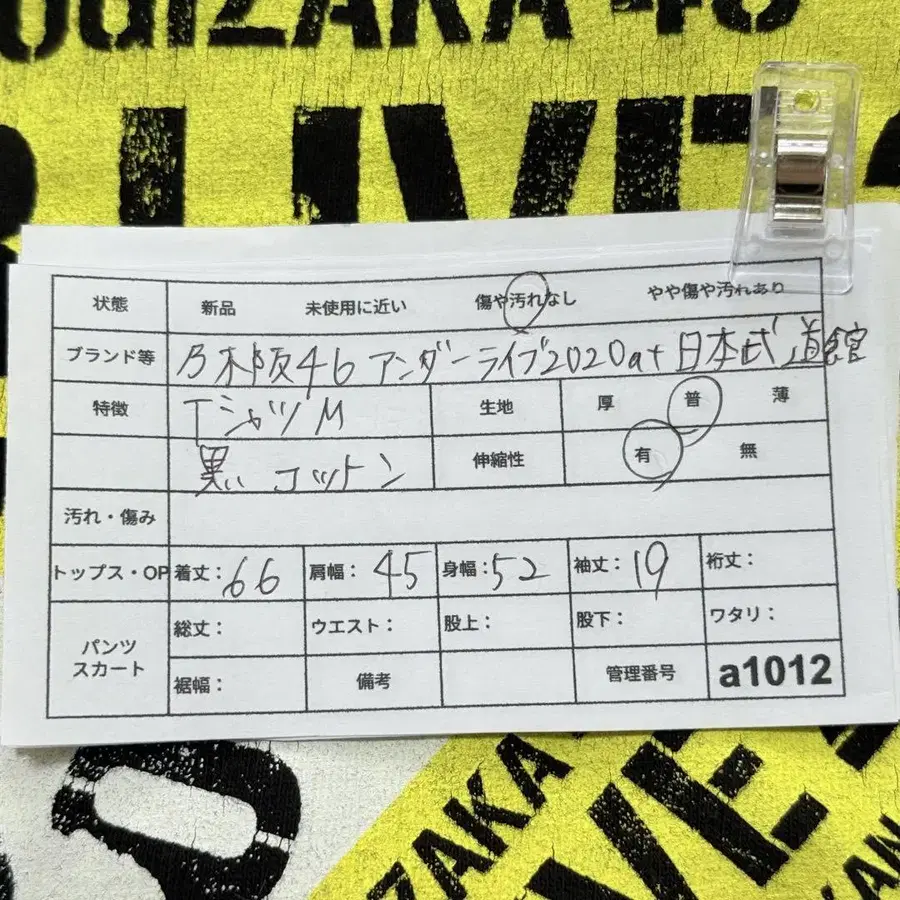 OGIZAKA 46
R LIVE 2
状態 新品 未使用に近い 傷や汚れなし やや傷や汚れあり
ブランド等 乃木阪46 アンダーライブ2020at日本武道館
特徴 TシャツM 生地 厚 普 薄
黒 コットン 伸縮性 有 無
汚れ・傷み
トップス・OP 着丈: 66 肩幅: 45 身幅: 52 袖丈: 19 裄丈:
パンツ スカート
総丈: ウエスト: 股上: 股下: ワタリ:
裾幅: 備考 管理番号 a1012
GIZAKA
VE